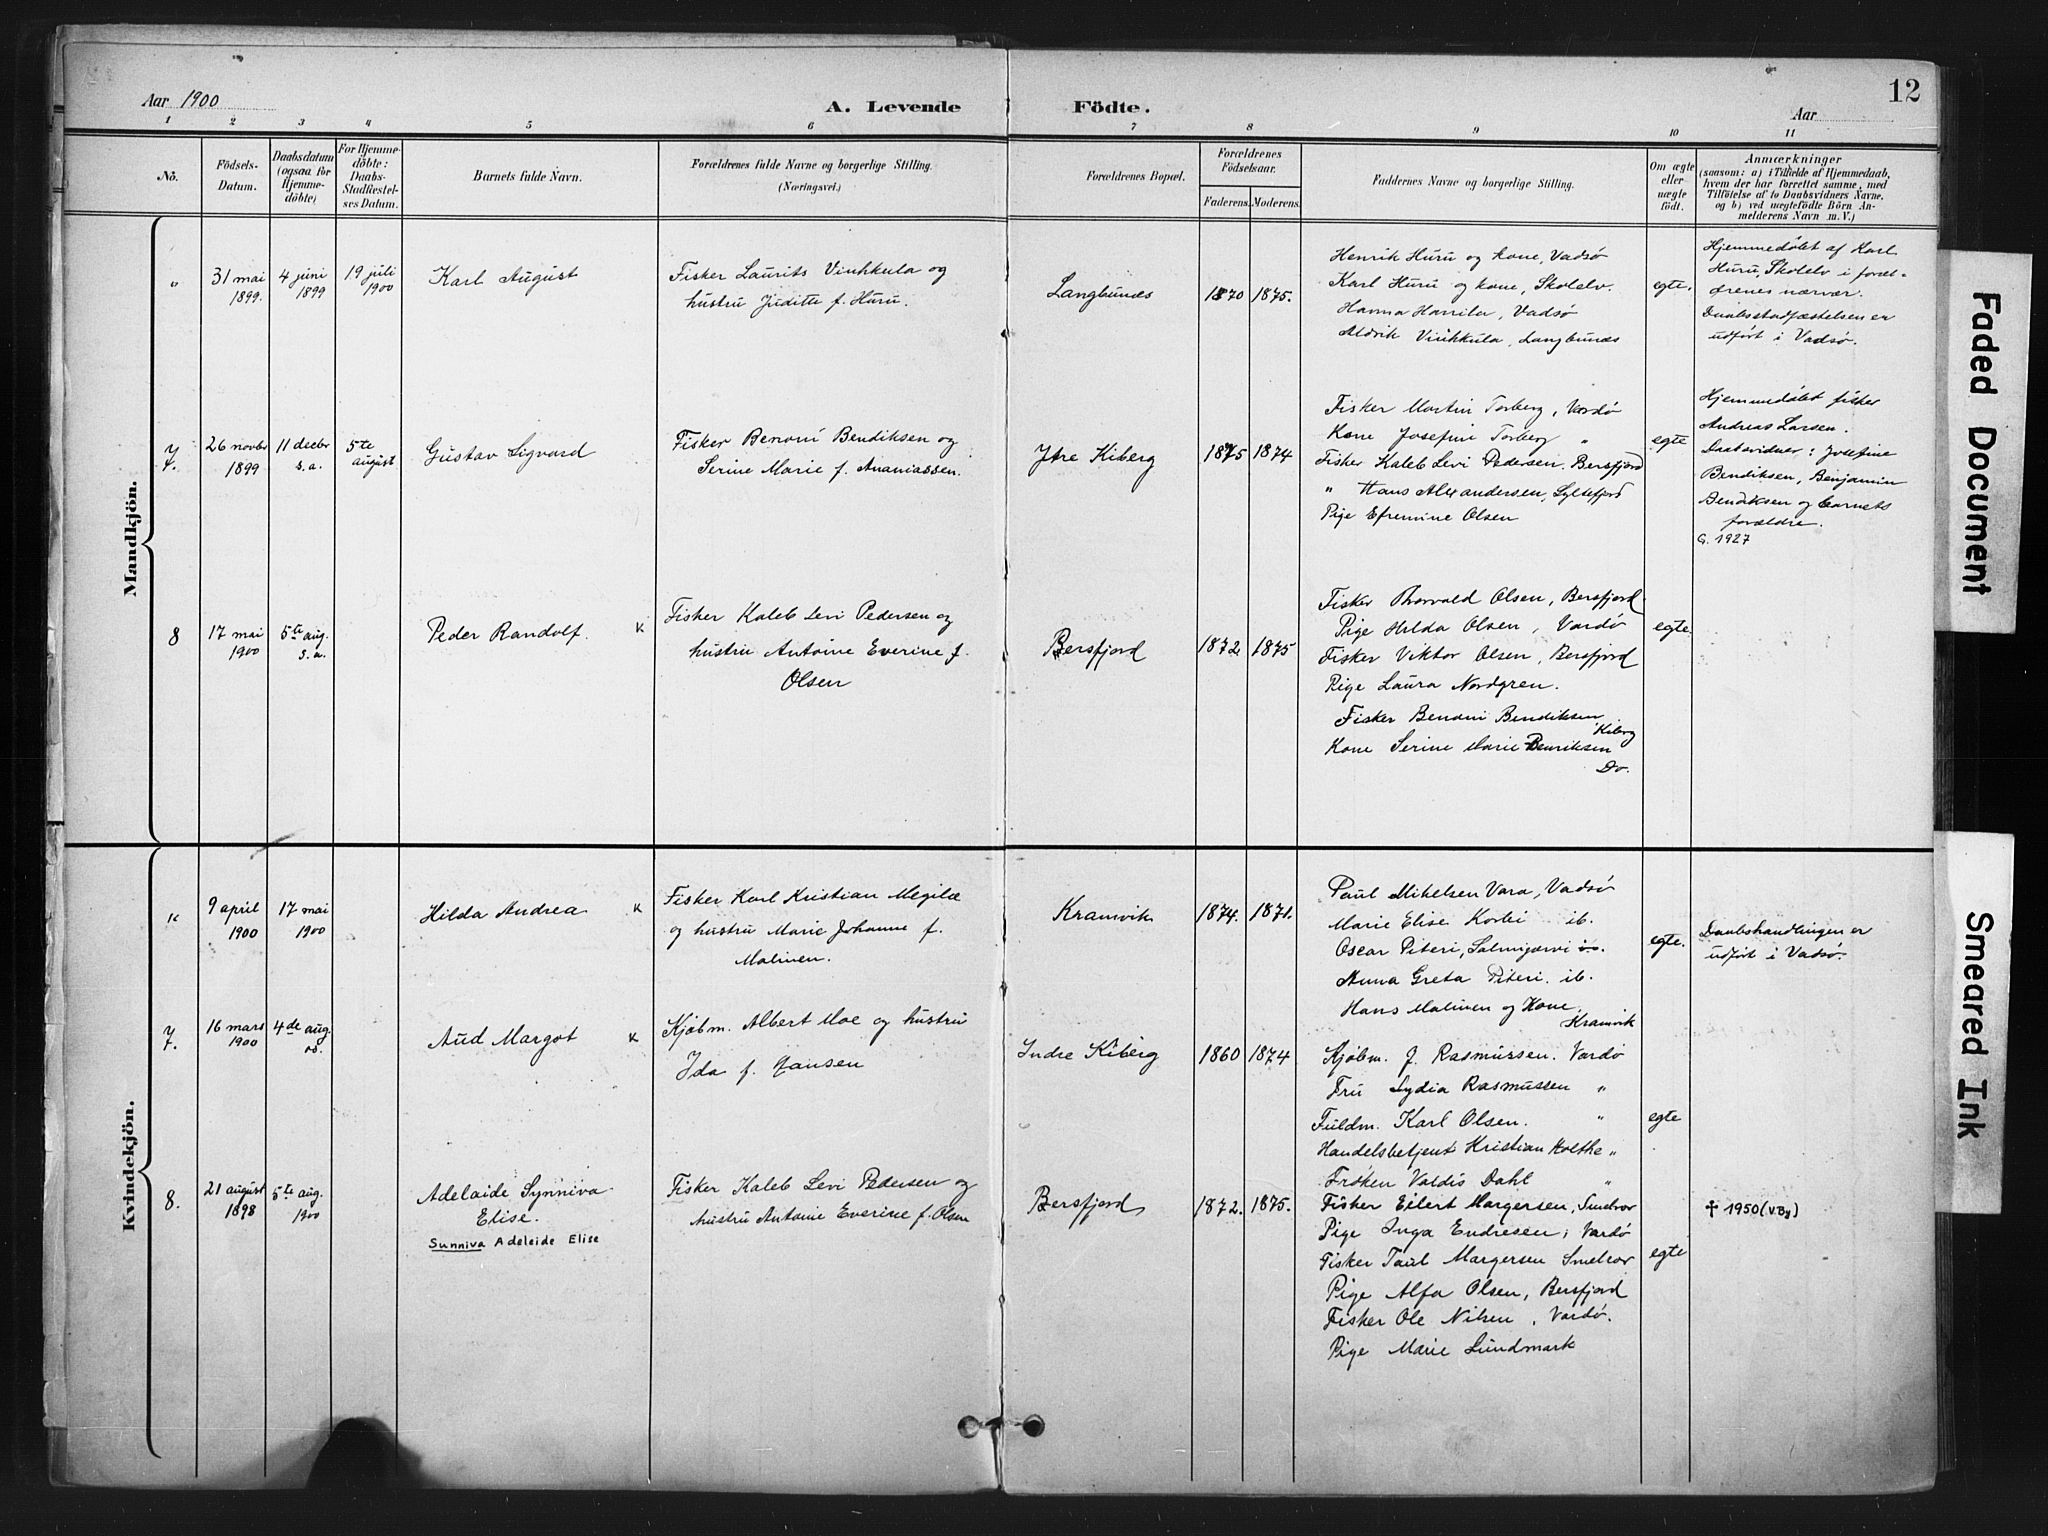 12
Aar 1900
A. Levende Födte.
Aar
1 2 3 4 5 6 7 8 9 10 11
No.
Födsels-
Datum.
Daabsdatum
(ogsaa for
Hjemme-
döbte)
For Hjemme-
döbte:
Daabs-
Stadfæstel-
ses Datum.
Barnets fulde Navn.
Forældrenes fulde Navne og borgerlige Stilling.
(Næringsvei.)
Forældrenes Bopæl.
Forældrenes
Födselsaar.
Faderens. Moderens.
Faddernes Navne og borgerlige Stilling.
Om ægte
eller
uægte
födt.
Anmærkninger
(saasom: a) i Tilfælde af Hjemmedaab,
hvem der har forrettet samme, med
Tilföielse af to Daabsvidners Navne,
og b) ved uægtefödte Börn An-
melderens Navn m. V.)
Mandkjön.
"
31 mai
1899.
4 juni
1899
19 juli
1900
Karl August
Fisker Laurits Vinhkula og
hustru Juditte f. Huru.
Langbunes
1870 1875.
Henrik Huru og kone, Vadsø
Karl Huru og kone, Skolelv.
Hanna Harrila, Vadsø
Aldrik Vinhkula, Langbunes
egte.
Hjemmedøbt af Karl
Huru, Skolelv i foræl-
drenes nærvær.
Daabsstadfæstelsen er
udført i Vadsø.
26 novbr
1899
11 decbr
s.a.
5te
august
Gustav Sigvard
Fisker Benoni Bendiksen og
Serine Marie f. Ananiassen.
Ytre Kiberg
1875 1874
Fisker Martin Torberg, Vardø
Kone Josefine Torberg "
Fisker Kaleb Levi Pedersen. Bersfjord
" Hans Alexandersen, Syltefjord
Pige Efremine Olsen
egte
Hjemmedøbt fisker
Andreas Larsen.
Daabsvidner: Josefine
Bendiksen, Benjamin
Bendiksen og barnets
forældre.
G. 1927
8
17 mai
1900
5te aug.
s.a.
Peder Randolf. K
Fisker Kaleb Levi Pedersen og
hustru Antoine Everine f.
Olsen
Bersfjord
1872. 1875
Fisker Thorvald Olsen, Bersfjord.
Pige Hilda Olsen, Vardø
Fisker Viktor Olsen, Bersfjord
Pige Laura Nordgren.
Fisker Benoni Bendiksen
Kiberg
Kone Serine Marie Benriksen
Do.
egte.
Kvindekjön.
"
9 april
1900
17 mai
1900
Hilda Andrea K
Fisker Karl Kristian Megilæ
og hustru Marie Johanne f.
Malinen.
Kramvik
1874. 1871.
Paul Mikelsen Vara, Vadsø
Marie Elise Korbi ib.
Oscar Piteri, Salmijærvi
Anna Greta Piteri. ib.
Hans Malinen og Kone,
Kramvik
egte.
Daabshandlingen er
udført i Vadsø.
16 mars
1900
4de aug.
Aud Margot K
Kjøbm. Albert Moe og hustru
Ida f. Jansen
Indre Kiberg
1860 1874
Kjøbm. J. Rasmussen. Vardø
Fru Lydia Rasmussen "
Fuldm. Karl Olsen. "
Handelsbetjent Kristian Holthe "
Frøken Valdis Dahl "
egte
8.
21 august
1898
5te aug.
1900
Adelaide Synniva
Elise.
Sunniva Adeleide Elise
Fisker Kaleb Levi Pedersen og
hustru Antoine Everine f. Olsen
Bersfjord
1872. 1875.
Fisker Eilert Margersen, Smelror
Pige Inga Endresen, Vardø
Fisker Paul Margersen Smelror
Pige Alfa Olsen, Bersfjord
Fisker Ole Nilsen, Vardø.
Pige Marie Lundmark
egte
✝ 1950 (V.By)
Faded Document
Smeared Ink